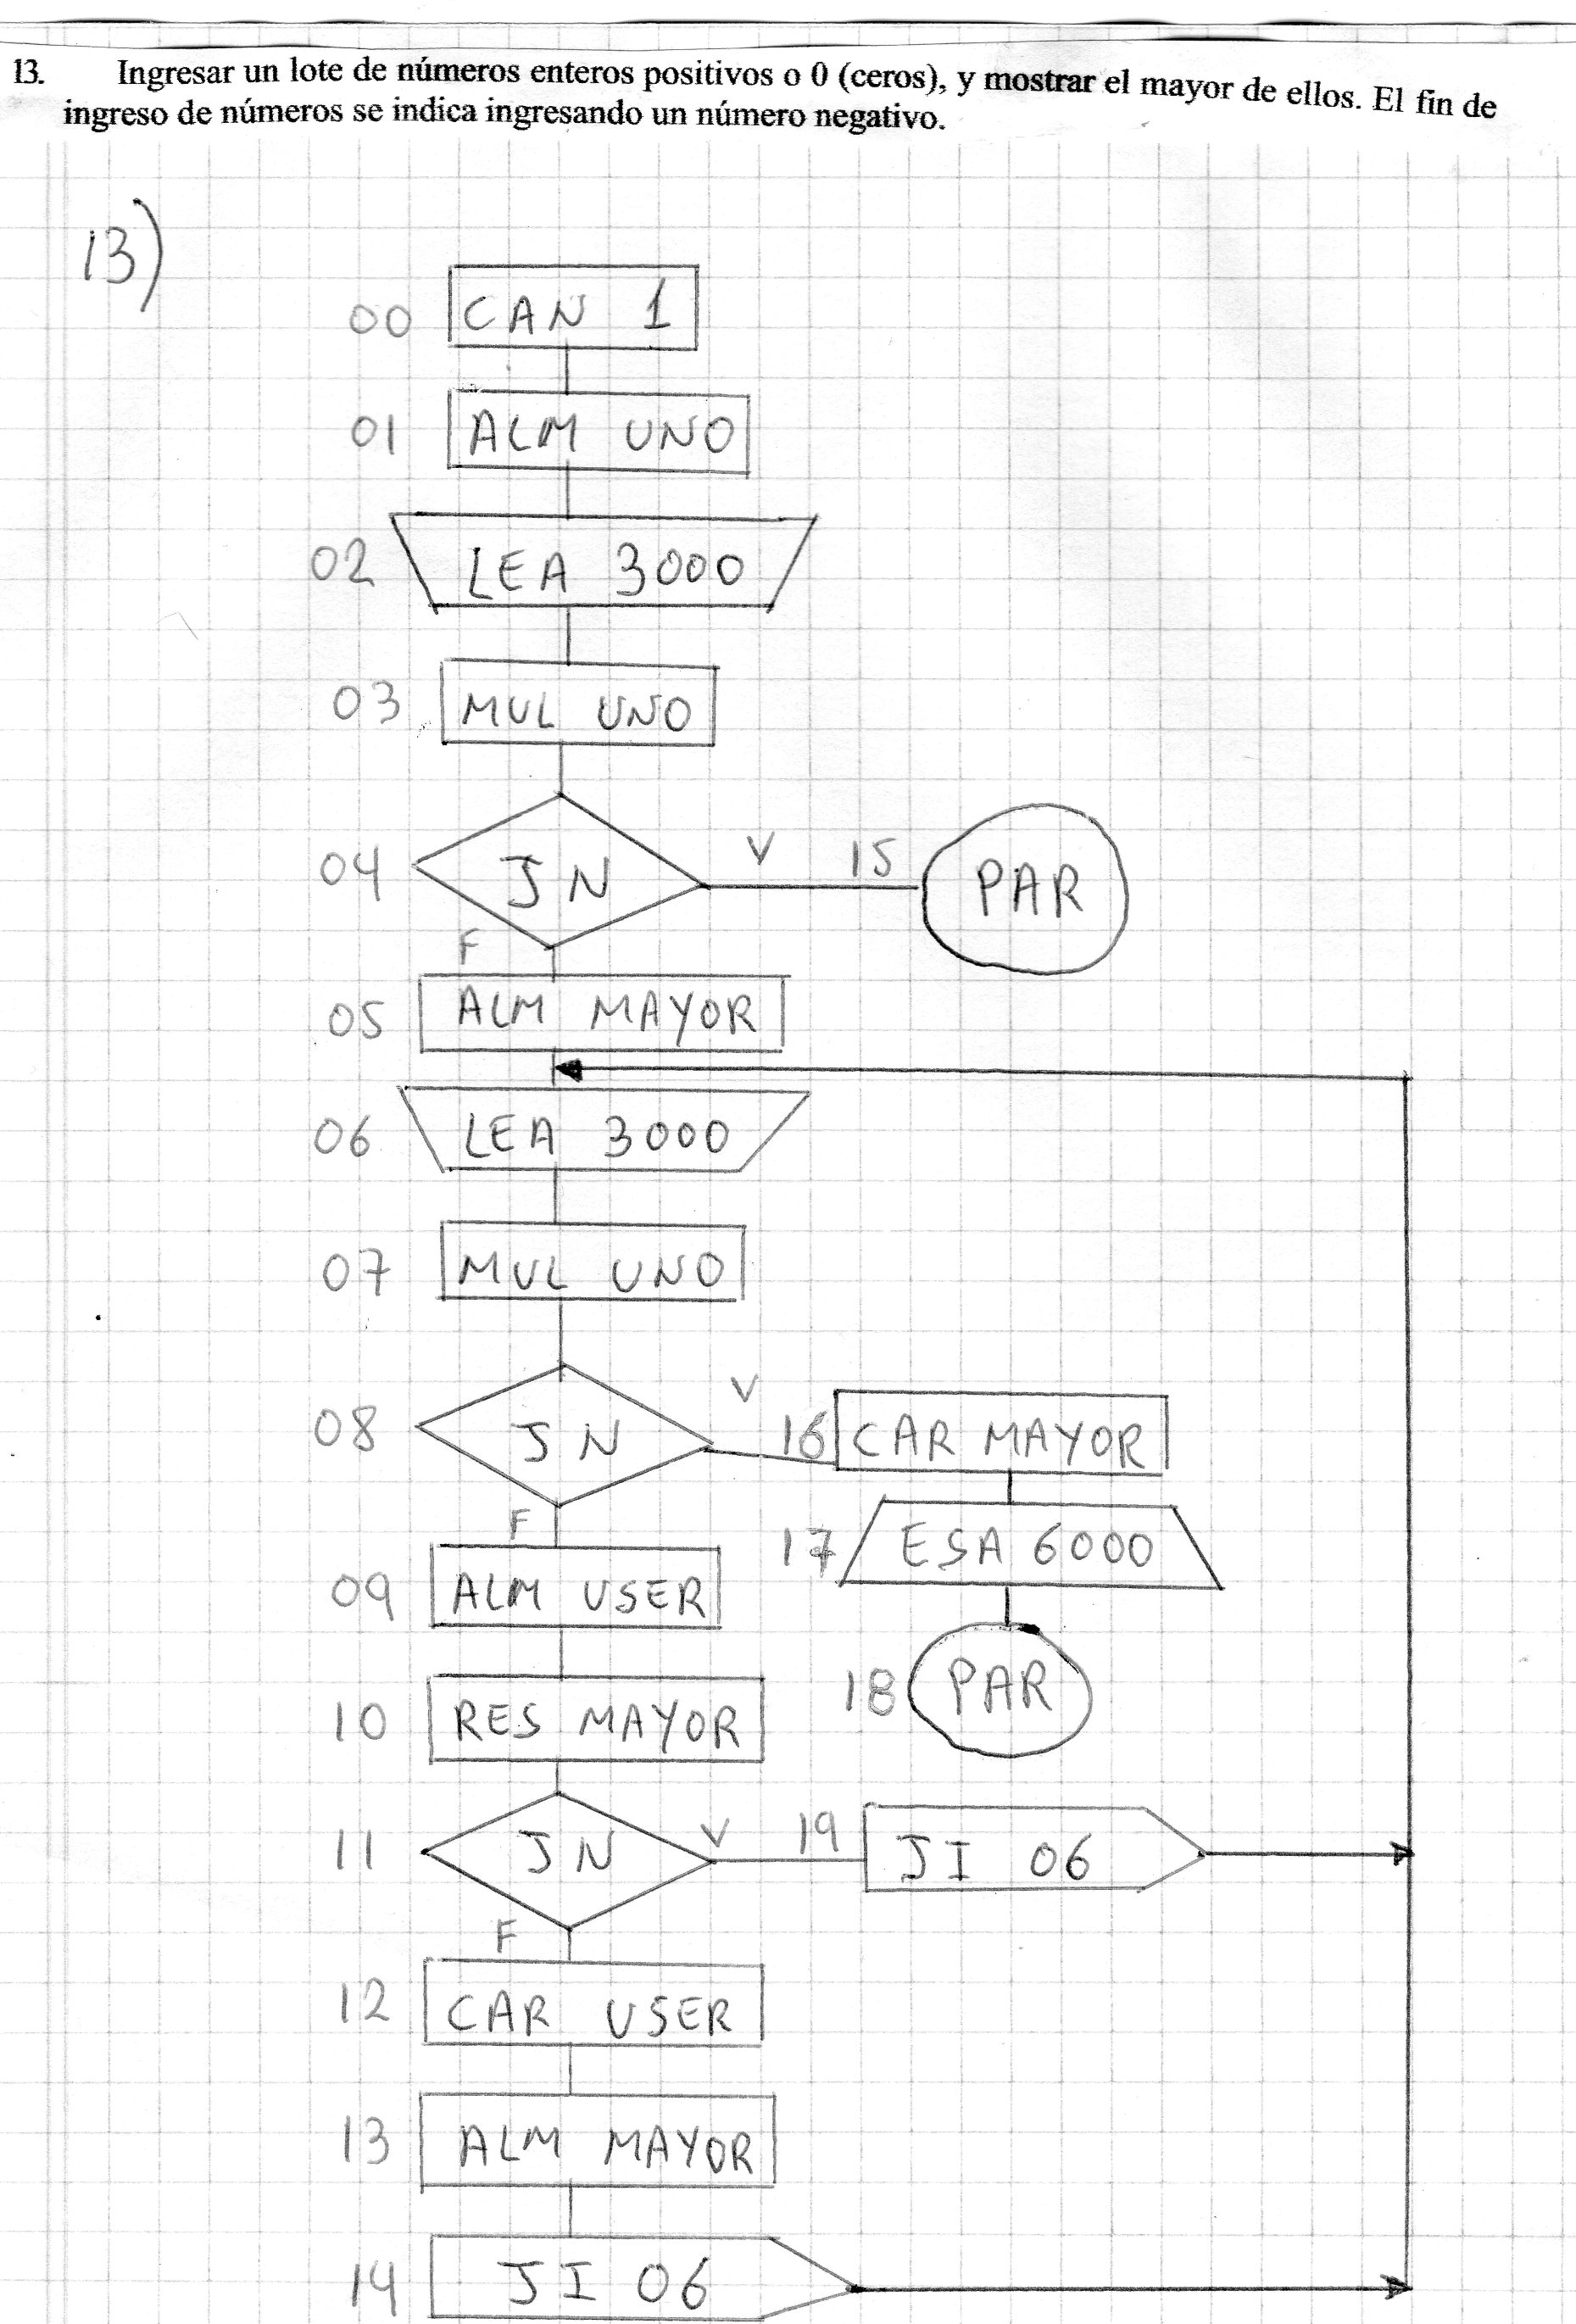 13. Ingresar un lote de números enteros positivos o 0 (ceros), y mostrar el mayor de ellos. El fin de
ingreso de números se indica ingresando un número negativo.
13)
00 CAN 1
01 ALM UNO
02 LEA 3000
03 MUL UNO
04 JN V 15 PAR
F
05 ALM MAYOR
06 LEA 3000
07 MUL UNO
08 JN V 16 CAR MAYOR
F
17 ESA 6000
09 ALM USER
18 PAR
10 RES MAYOR
11 JN V 19 JI 06
F
12 CAR USER
13 ALM MAYOR
14 JI 06